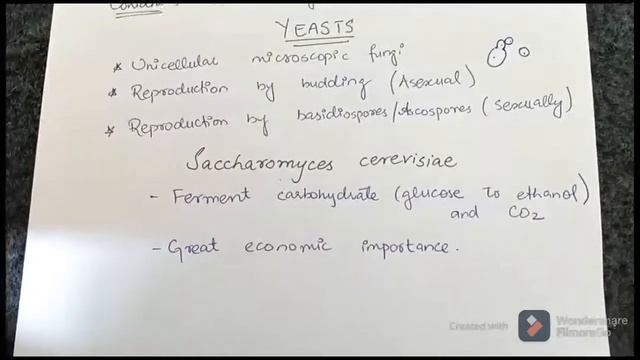 YEASTS
* Unicellular microscopic fungi
* Reproduction by budding (Asexual)
* Reproduction by basidiospores/Ascospores (sexually)
Saccharomyces cerevisiae
- Ferment carbohydrate (glucose to ethanol)
and CO2
- Great economic importance.
Created with
Wondershare
FilmoraGo